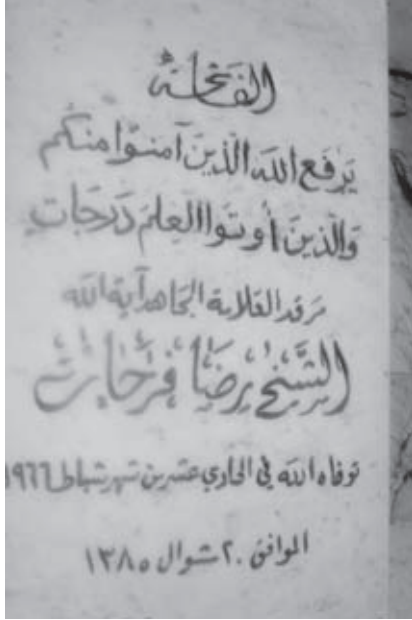 الفاتحة
يرفع الله الذين آمنوا منكم
والذين أوتوا العلم درجات
مرقد العلامة المجاهد آية الله
الشيخ رضا فرحات
توفاه الله في الحادي عشرين شهر شباط ١٩٦٦
الموافق ٢٠ شوال ١٣٨٥